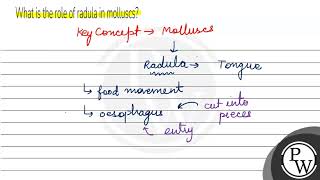 What is the role of radula in molluscs?
Key Concept → Molluscs
↓
Radula → Tongue
↳ food movement
↳ oesophagus ← cut into pieces
↖ entry
PW